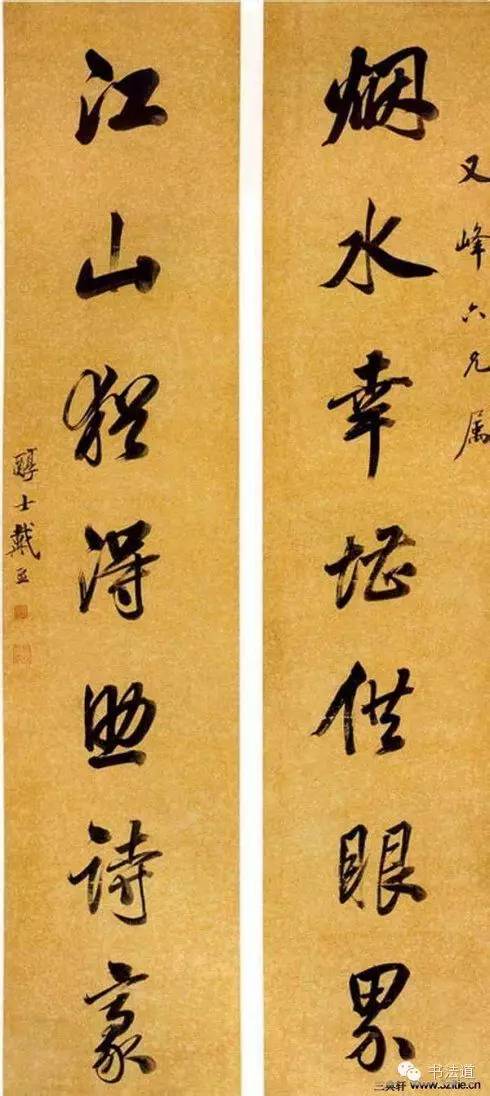 又峰六兄属
烟水幸堪供眼界
江山猶得助詩豪
醇士戴熙
书法道
www.3zitie.cn